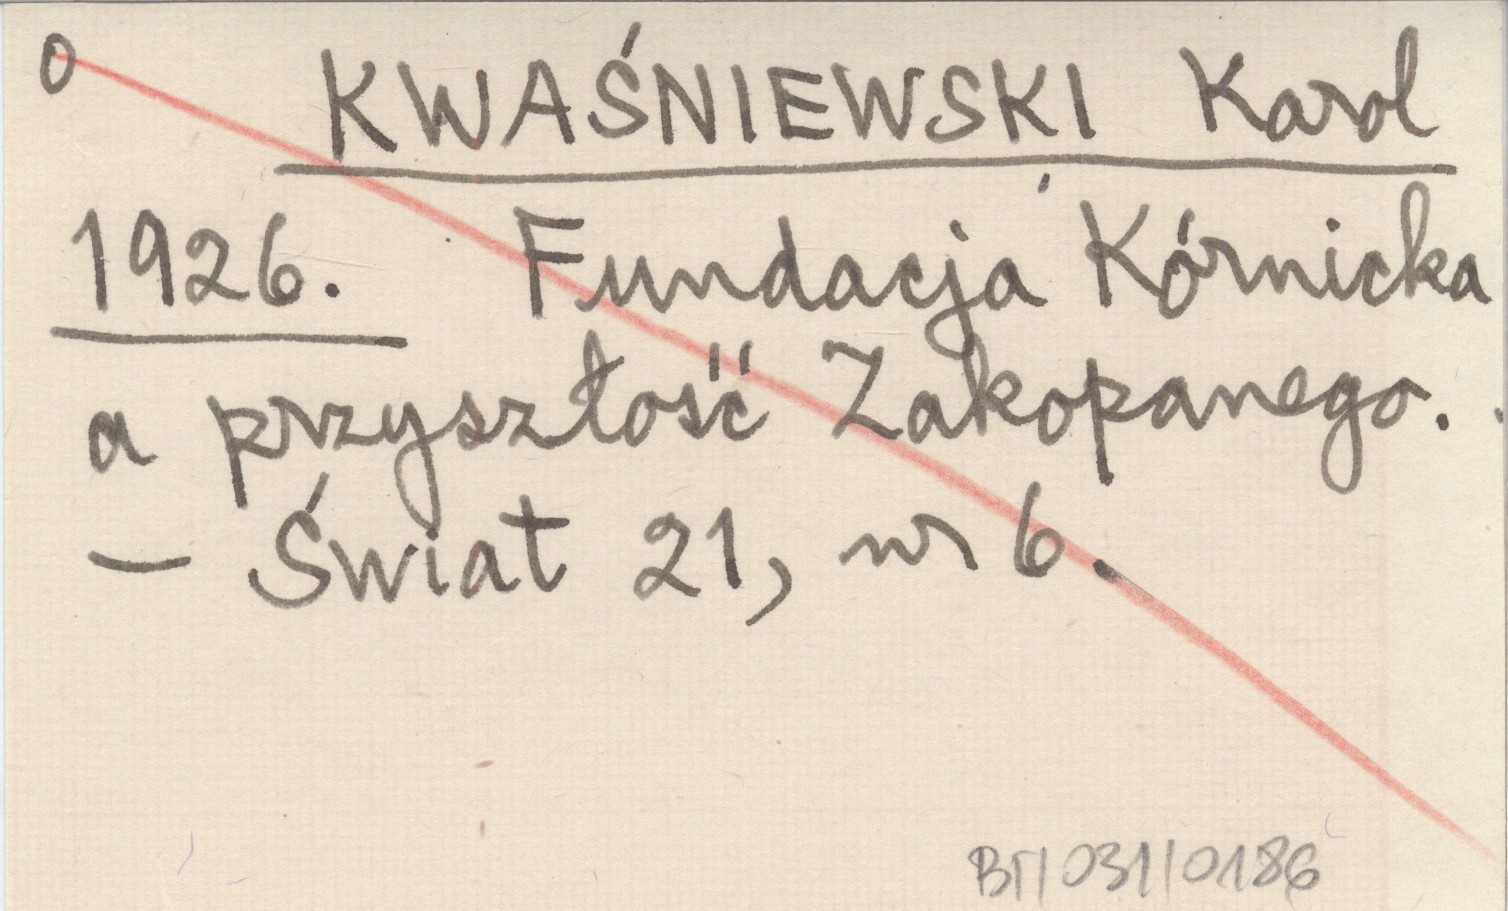 0 KWAŚNIEWSKI Karol
1926. Fundacja Kórnicka
a przyszłość Zakopanego.
– Świat 21, nr 6.
BT/031/0186